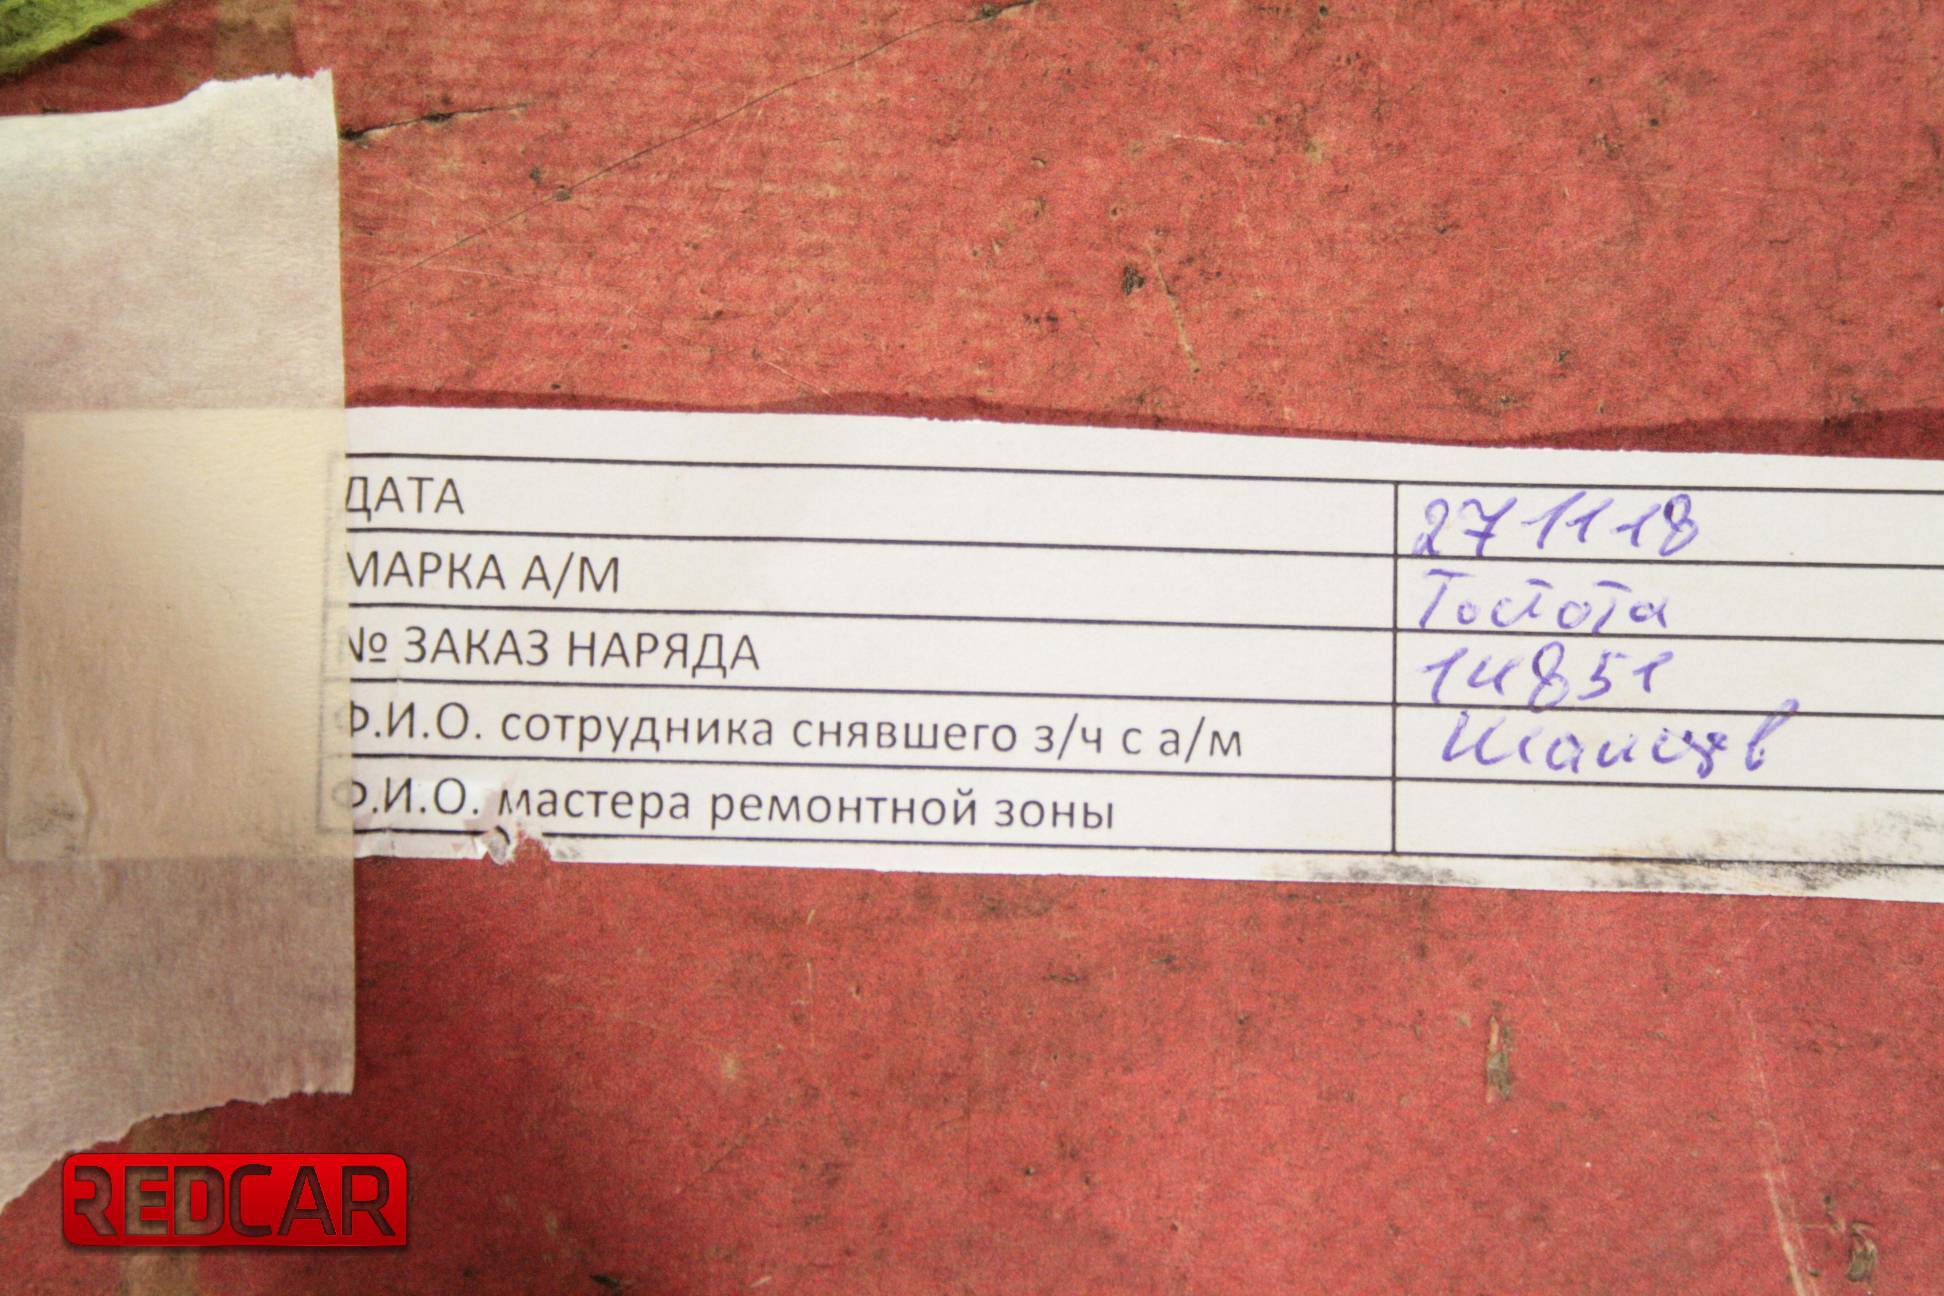 ДАТА 27 11 18
МАРКА А/М Тойота
№ ЗАКАЗ НАРЯДА 14851
Ф.И.О. сотрудника снявшего з/ч с а/м
Ф.И.О. мастера ремонтной зоны
REDCAR